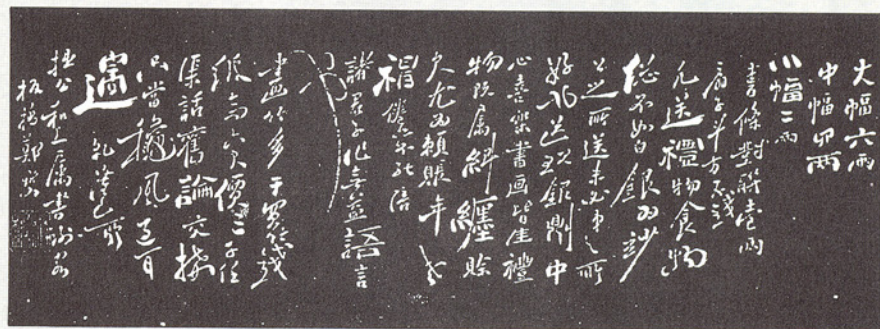 大幅六兩
中幅四兩
小幅二兩
書條對聯壹兩
扇子斗方五錢
凡送禮物食物
總不如白銀為妙
公之所送未必弟之所
好也送現銀則中
心喜樂書画皆佳禮
物既属糾纏賒
欠尤為賴賬年老
神倦不能陪
諸君子作無益語言
也
畫竹多于買竹錢
紙高六尺價三千任
渠話舊論交接
只當穐風過耳
邊 乾隆己卯
拙公和上屬書謝客
板橋鄭燮